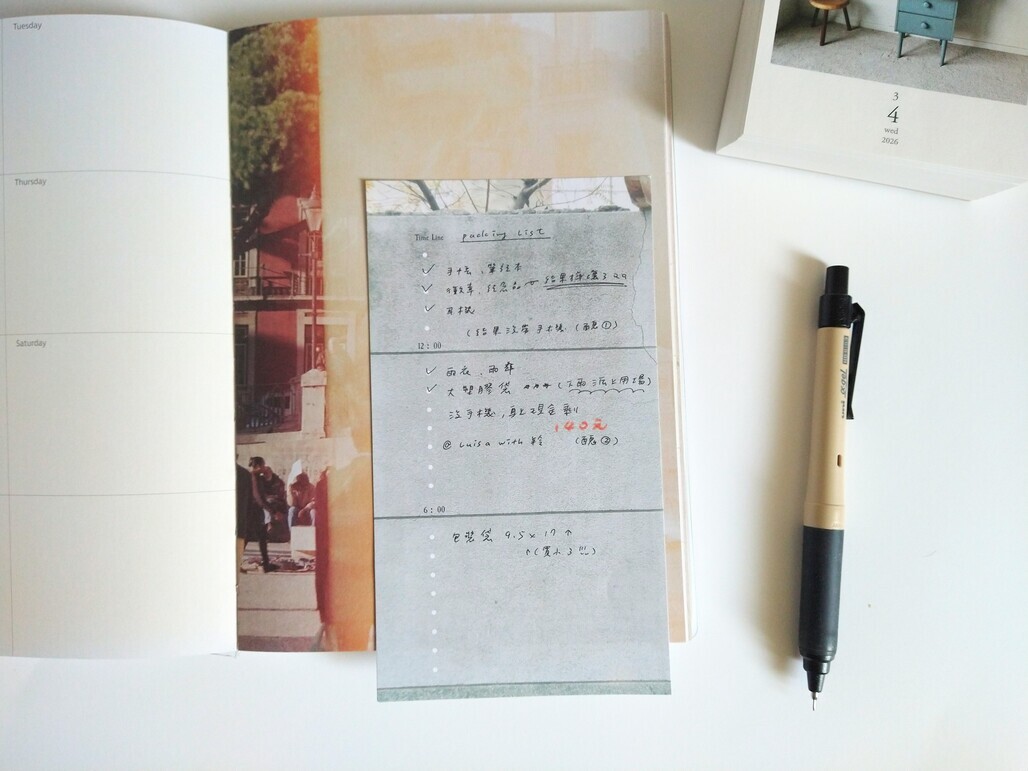 Tuesday
Thursday
Saturday
3
4
wed
2026
Time Line packing List
手卡、筆記本
紀念品 → 結果掉漆了QQ
耳機
(結果沒帶手機 (酒①)
12:00
雨衣、雨傘
大塑膠袋 (下雨派上用場)
沒手機,身上現金剩
140元
@ Luisa with
6:00
包裝袋 9.5 x 17 ↑
↑(買小了!!!)